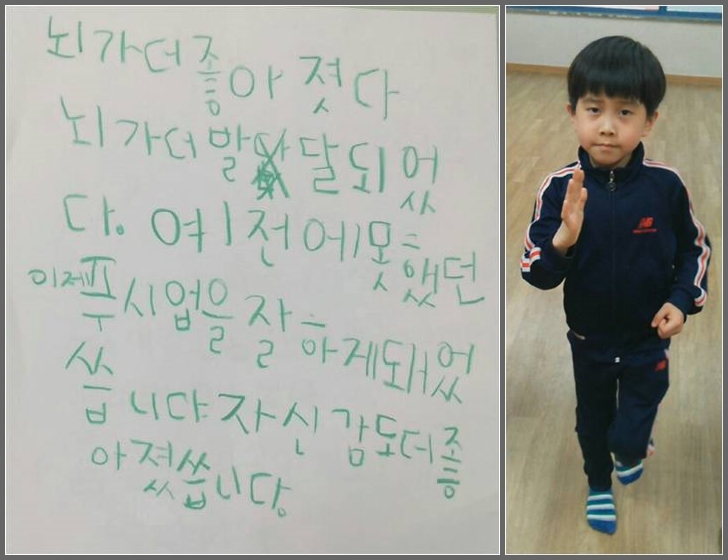 뇌가더좋아 젓다
뇌가더발달되었
다. 예전에못했던
이제푸시업을 잘 하게돼었
씁니다 자신감도더좋
아졌씁니다.